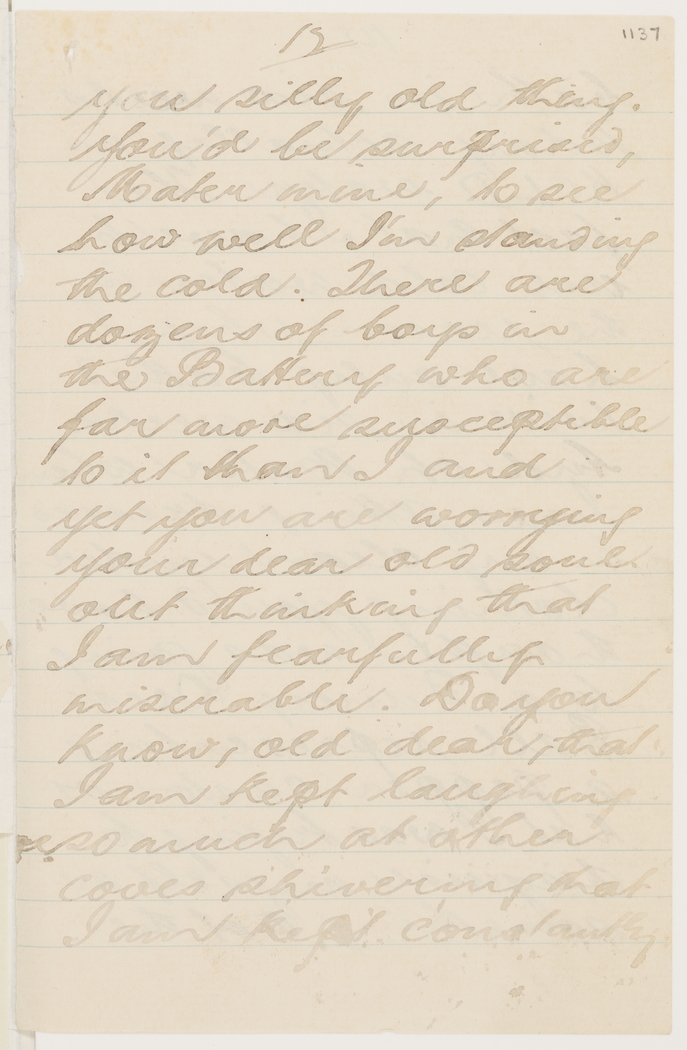 12
1137
you silly old thing.
You'd be surprised,
Mater mine, to see
how well I'm standing
the cold. There are
dozens of boys in
the Battery who are
far more susceptible
to it than I and
yet you are worrying
your dear old soul
out thinking that
I am fearfully
miserable. Do you
know, old dear, that
I am kept laughing
so much at other
coves shivering that
I am kept constantly